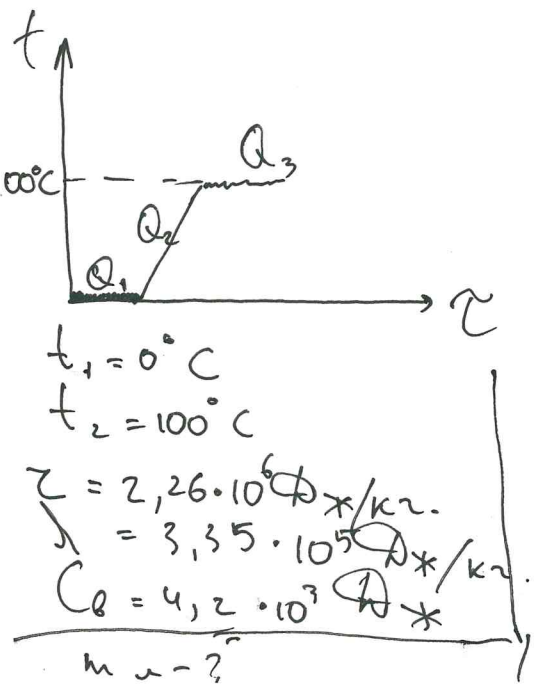 t
Q₃
00°C
Q₂
Q₁
τ
t₁ = 0° C
t₂ = 100° C
τ = 2,26·10⁶ Дж/кг.
λ = 3,35·10⁵ Дж/кг.
Cв = 4,2·10³ Дж
m л - ?